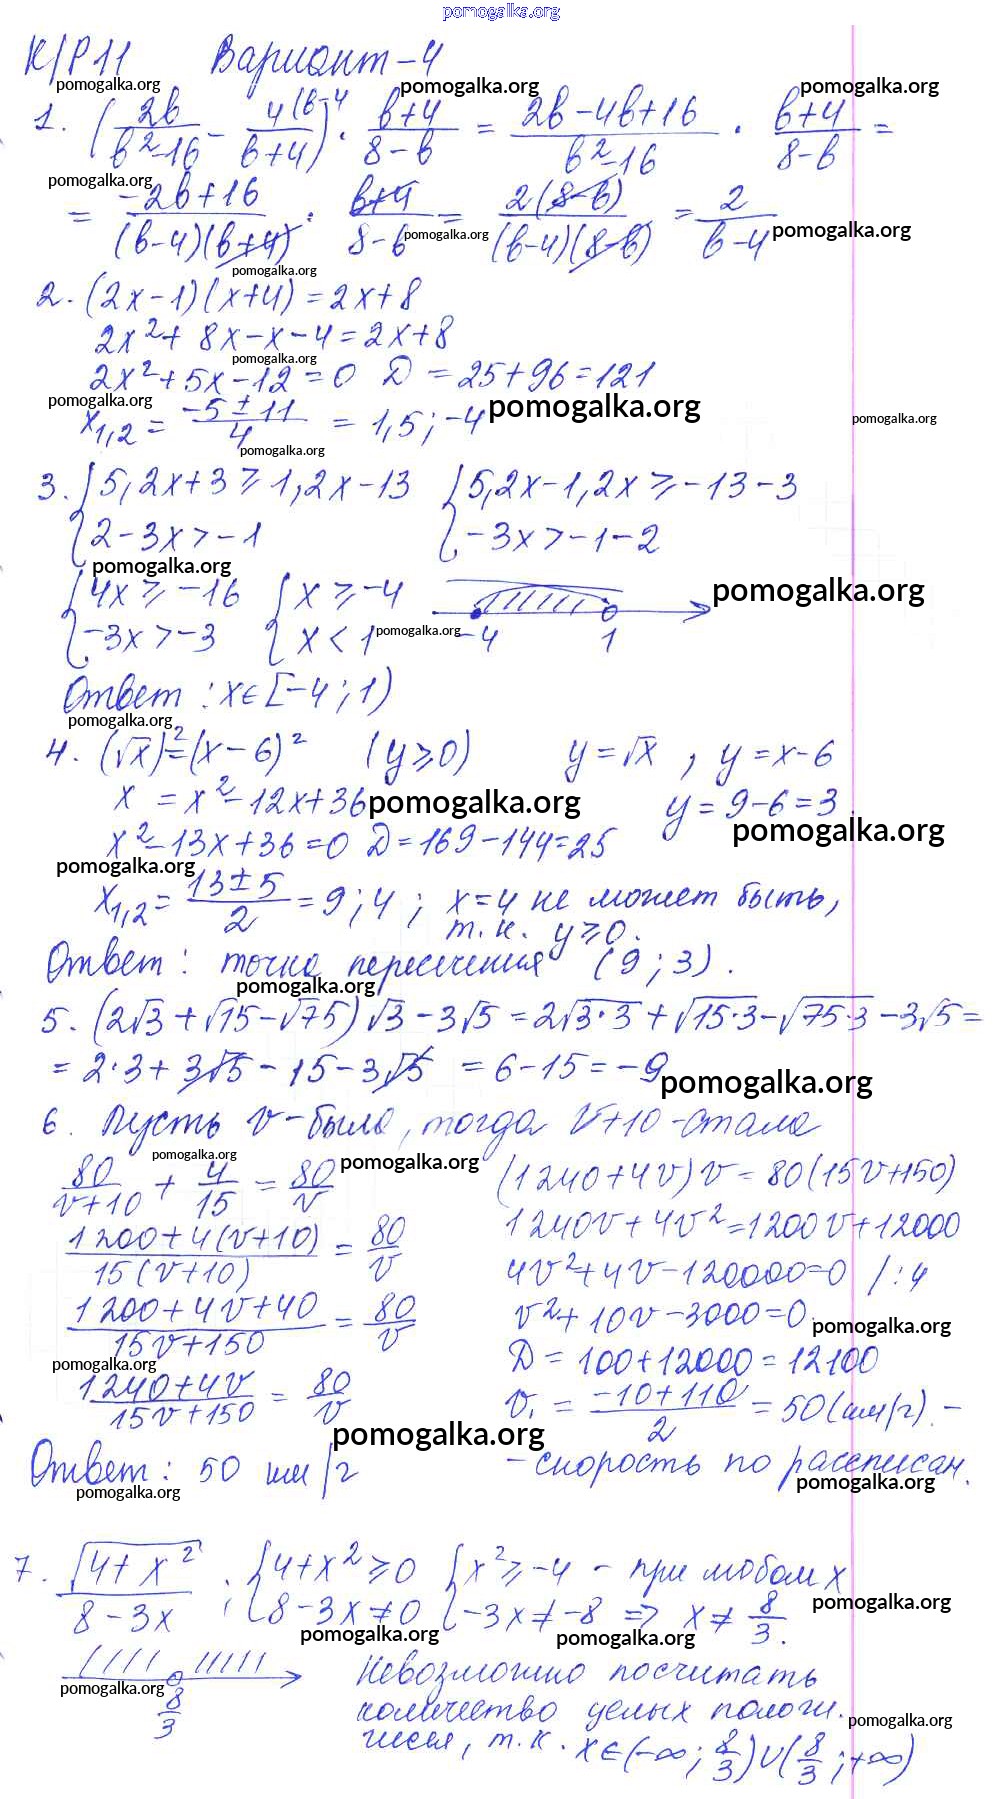 pomogalka.org
К/Р 11 Вариант-4
pomogalka.org pomogalka.org pomogalka.org
1. (2b/(b²-16) - 4(b-4/(b+4)) · (b+4)/(8-b) = (2b-4b+16)/(b²-16) · (b+4)/(8-b) =
pomogalka.org
= (-2b+16)/((b-4)(b+4)) · (b+4)/(8-b) = 2(8-b)/((b-4)(8-b)) = 2/(b-4)
pomogalka.org pomogalka.org
pomogalka.org
2. (2x-1)(x+4)=2x+8
2x²+8x-x-4=2x+8
pomogalka.org
2x²+5x-12=0 D=25+96=121
pomogalka.org
x₁,₂ = (-5±11)/4 = 1,5; -4 pomogalka.org
pomogalka.org pomogalka.org
3. {5,2x+3⩾1,2x-13 {5,2x-1,2x⩾-13-3
{2-3x>-1 {-3x>-1-2
pomogalka.org
{4x⩾-16 {x⩾-4 pomogalka.org
{-3x>-3 {x<1 pomogalka.org -4 1
Ответ: x∈[-4;1)
pomogalka.org
4. (√x)²=(x-6)² (y⩾0) y=√x, y=x-6
x=x²-12x+36 pomogalka.org y=9-6=3.
x²-13x+36=0 D=169-144=25 pomogalka.org
pomogalka.org
x₁,₂ = (13±5)/2 = 9; 4; x=4 не может быть,
т.к. y⩾0.
Ответ: точка пересечения (9; 3).
pomogalka.org
5. (2√3+√15-√75)√3-3√5=2√3·3+√15·3-√75·3-3√5=
=2·3+3√5-15-3√5 =6-15=-9
pomogalka.org
6. Пусть v-было, тогда v+10-стало
pomogalka.org pomogalka.org
80/(v+10) + 4/15 = 80/v (1240+4v)v=80(15v+150)
(1200+4(v+10))/(15(v+10)) = 80/v 1240v+4v²=1200v+12000
4v²+4v-120000=0 /:4
(1200+4v+40)/(15v+150) = 80/v v²+10v-3000=0.
pomogalka.org
pomogalka.org D=100+12000=12100
(1240+4v)/(15v+150) = 80/v v₁ = (-10+110)/2 = 50(км/г). -
pomogalka.org
Ответ: 50 км/г -скорость по рассписан.
pomogalka.org pomogalka.org
7. √(4+x²)/(8-3x); {4+x²⩾0 {x²⩾-4 - при любом x
{8-3x≠0 {-3x≠-8 ⇒ x≠8/3.
pomogalka.org
pomogalka.org pomogalka.org
8/3 Невозможно посчитать
pomogalka.org
количество целых полож.
pomogalka.org
чисел, т.к. x∈(-∞; 8/3)∪(8/3; +∞)